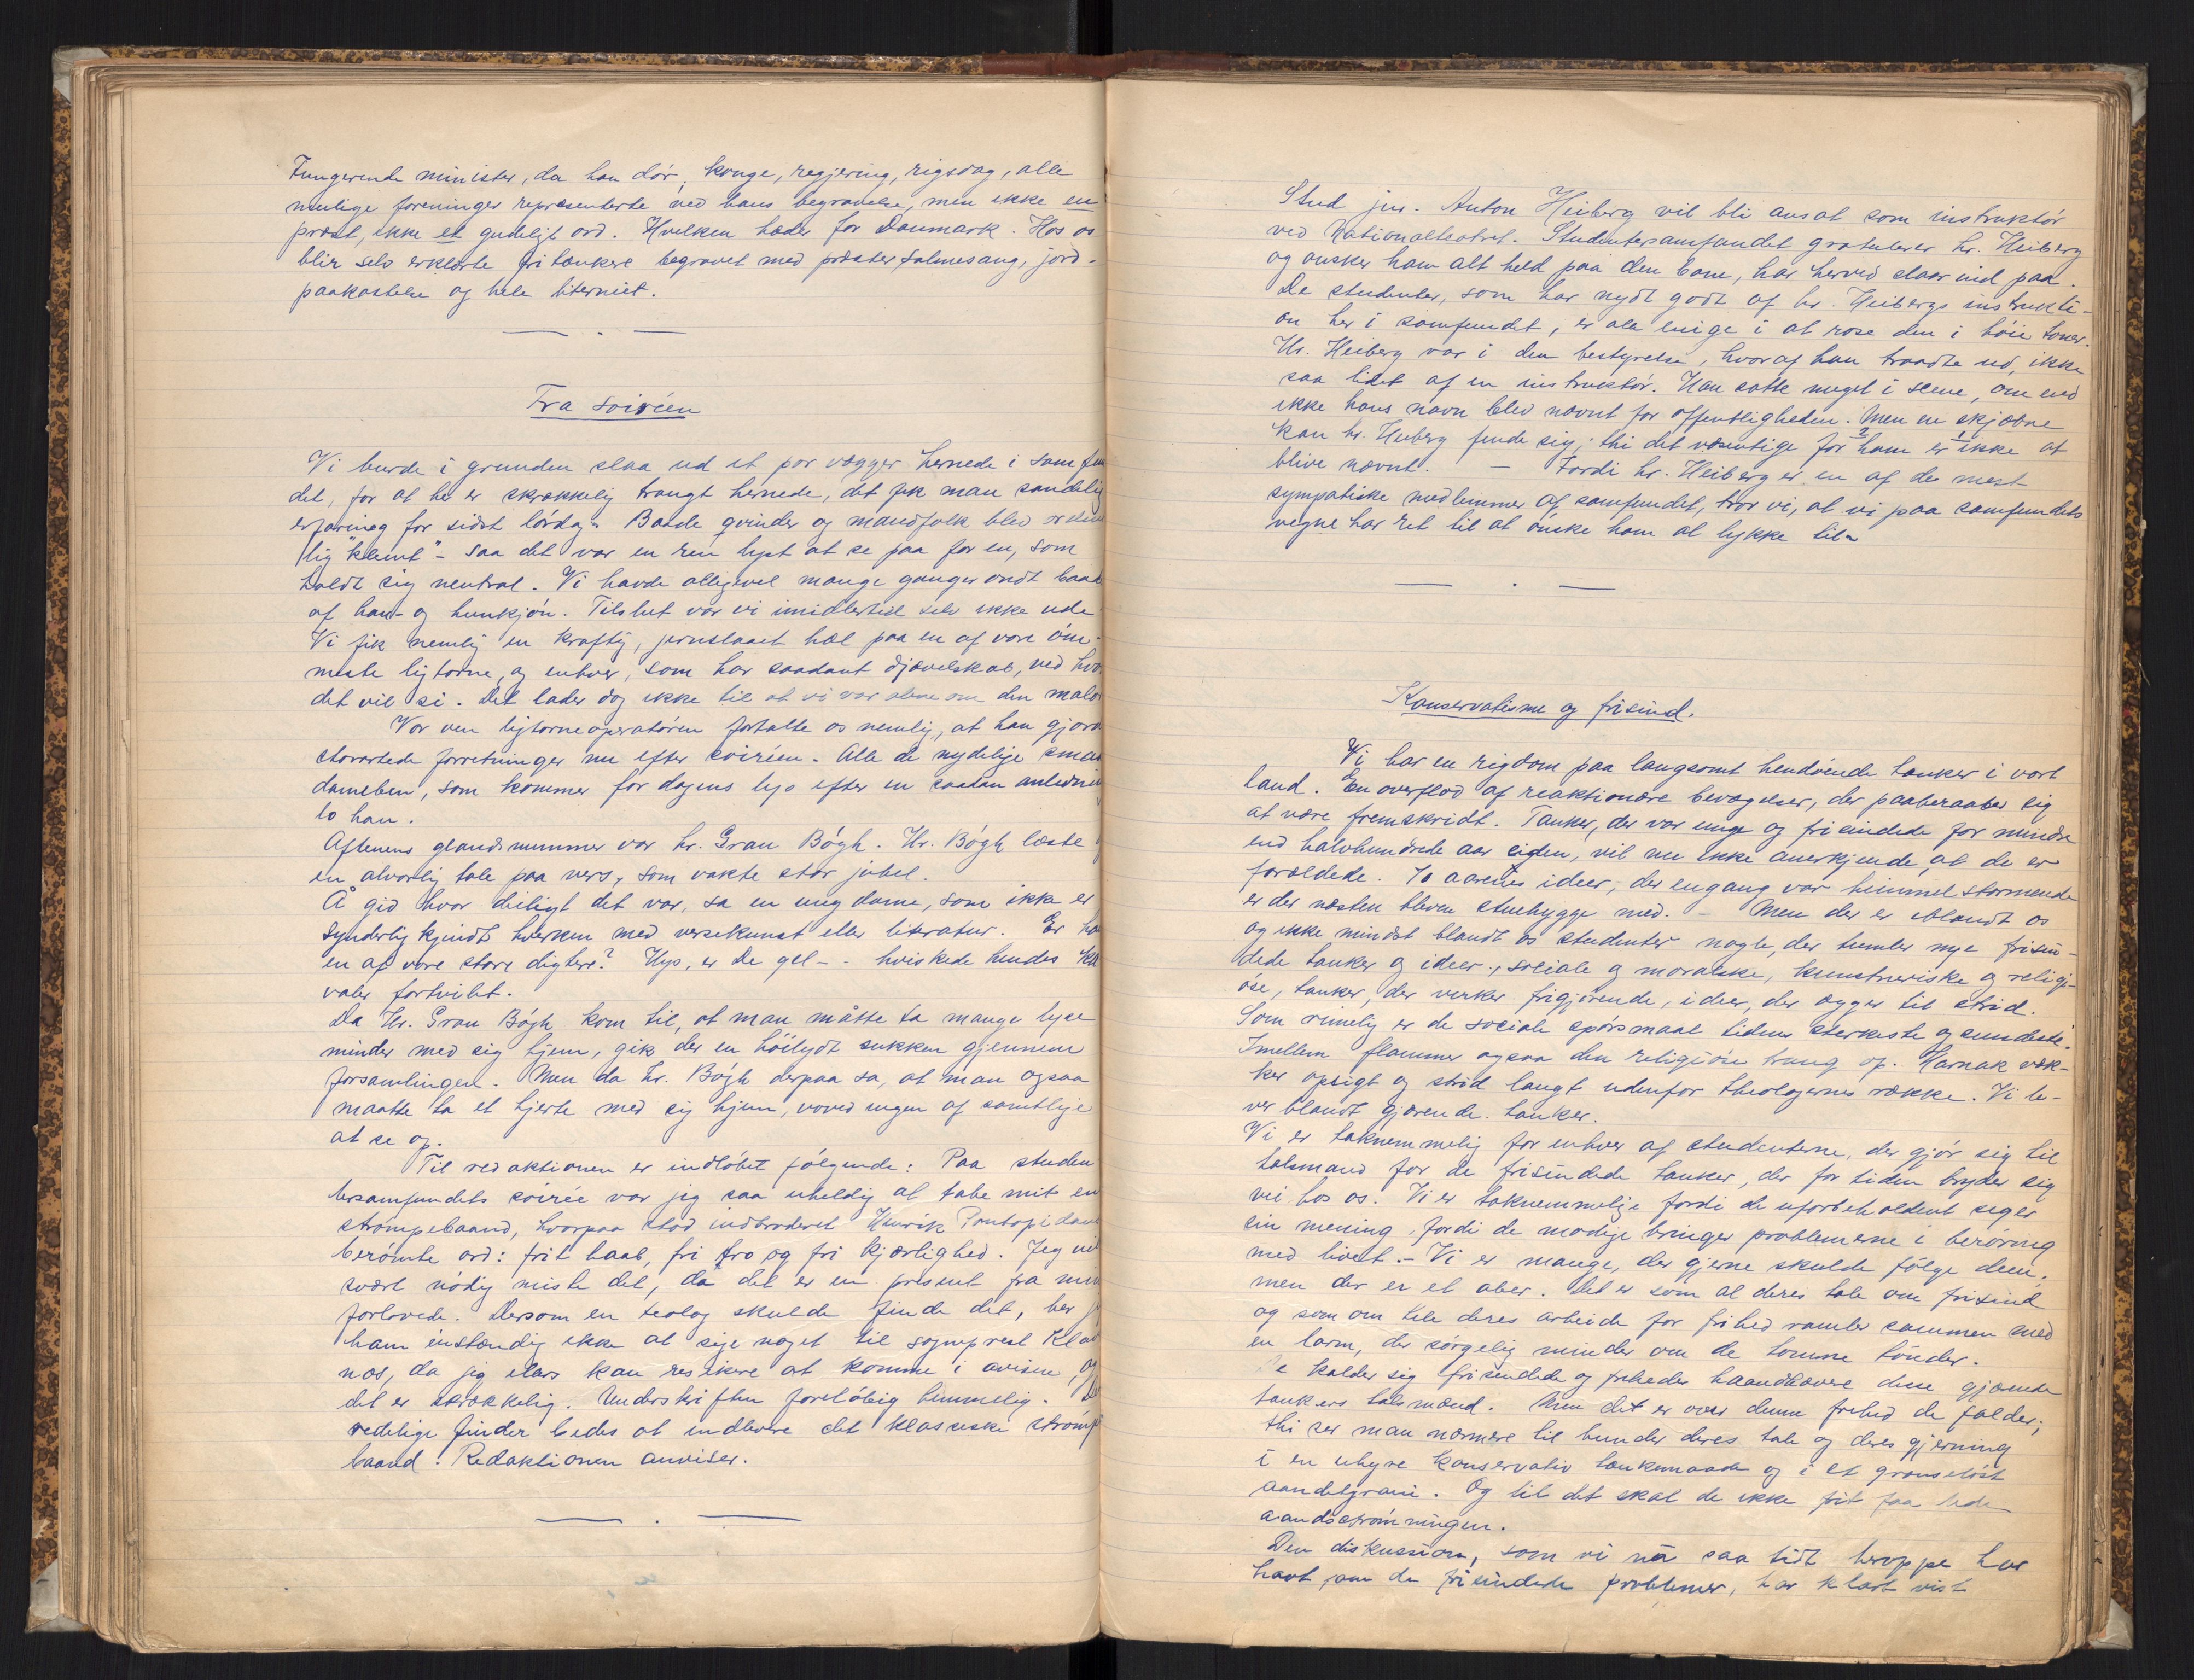 Fungerende minister, da han dör, konge, regjering, rigsdag, alle
mulige foreninger repræsenterte ved hans begravelse, men ikke en
præst, ikke et gudeligt ord. Hvilken hæder for Danmark. Hos os
blir selv erklærte fritænkere begravet med præster, salmesang, jord-
paakastelse og hele literniet.
Fra soiréen
Vi burde i grunden slaa ud et par vægger hernede i samfun
det, for at her er skrækkelig trangt hernede, det fik man sandelig
erfaring for sidst lördag. Baade qvinder og mandfolk blev
lig "klemt" - saa det var en ren lyst at se paa for en, som
holdt sig neutral. Vi havde alligevel mange ganger ondt baade
af han- og hunkjön. Tilslut var vi imidlertid selv ikke ude
Vi fik nemlig en kraftig, jernslaaet hæl paa en af vore öm-
meste ligtorne, og enhver, som har saadant djævelskab, ved hva
det vil si. Det lader dog ikke til at vi var alene om den
Vor ven ligtorneoperatören fortalte os nemlig, at han gjord
storartede forretninger nu efter soiréen. Alle de nydelige smaa
dameben, som kommer for dagens lys efter en saadan anlednin
lo han.
Aftenens glandsnummer var hr. Gran Bögh. Hr. Bögh læste
en alvorlig tale paa vers, som vakte stor jubel.
Å gid hvor deiligt det var, sa en ung dame, som ikke er
synderlig kjendt hverken med versekunst eller literatur. Er ha
en af vore store digtere? Hys, er De gal - - hviskede hendes ka
valer fortvilet.
Da Hr. Gran Bögh kom til, at man måtte ta mange lyse
minder med sig hjem, gik der en höilydt sukken gjennem
forsamlingen. Men da hr. Bögh derpaa sa, at man ogsaa
maatte ta et hjerte med sig hjem, voved ingen af samtlige
at se op.
Til redaktionen er indlöbet fölgende: Paa studen
tersamfundets soirée var jeg saa uheldig at tabe mit en
strömpebaand, hvorpaa stod indbroderet Henrik Pontopidans
berömte ord: frit haab, fri tro og fri kjærlighed. Jeg vil
svært nödig miste det, da det er en present fra min
forlovede. Dersom en teolog skulde finde det, ber j
ham enstændig ikke at sige noget til sogneprest Klav
nes, da jeg elars kan resikere at komme i avisen, og
det er skrækkelig. Underskriften foreløbig hemmelig. De
redelige finder bedes at indlevere det klassiske strömp
baand. Redaktionen anviser.
Stud jur. Anton Heiberg vil bli ansat som instruktör
ved Nationalteatret. Studentersamfundet gratulerer hr. Heiberg
og önsker ham alt held paa den bane, han herved slaar ind paa.
De studenter, som har nydt godt af hr. Heibergs instrukti-
on her i samfundet, er alle enige i at rose den i höie toner.
Hr. Heiberg var i den bestyrelse, hvoraf han traadte ud, ikke
saa lidet af en instruktör. Han satte meget i scene, om end
ikke hans navn blev nævnt for offentligheden. Men en skjæbne
kan hr. Heiberg finde sig; thi det væsentlige for 2 ham er 1 ikke at
blive nævnt. - Fordi hr. Heiberg er en af de mest
sympatiske medlemmer af samfundet, tror vi, at vi paa samfundets
vegne har ret til at önske ham al lykke til.
Konservatisme og frisind.
Vi har en rigdom paa langsomt hendöende tanker i vort
land. En overflod af reaktionære bevægelser, der paaberaaber sig
at være fremskridt. Tanker, der var unge og frisindede for mindre
end halvhundrede aar siden, vil nu ikke anerkjende, at de er
forældede. 70 aarenes ideer, der engang var himmelstormende
er der næsten bleven stuehygge med. - Men der er iblandt os
og ikke mindst blandt os studenter nogle, der tumler nye frisin-
dede tanker og ideer., sociale og moralske, kunstneriske og religi-
öse, tanker, der virker frigjörende, ideer, der ægger til strid.
Som rimelig er de sociale spörsmaal tidens sterkeste og sundeste.
Imellem flammer ogsaa den religiöse trang op. Harnak væk-
ker opsigt og strid langt udenfor theologernes række. Vi le-
ver blandt gjærende tanker.
Vi er taknemmelig for enhver af studenterne, der gjör sig til
talsmand for de frisindede tanker, der for tiden bryder sig
vei hos os. Vi er taknemmelige fordi de uforbeholdent siger
sin mening, fordi de modige bringer problemerne i beröring
med livet. - Vi er mange, der gjerne skulde fölge dem,
men der er et aber. Det er som al deres tale om frisind
og som om hele deres arbeide for frihed ramler sammen med
en larm, der sörgelig minder om de tomme tönder.
De kalder sig frisindede og friheders haandhævere disse gjærende
tankers talsmænd. Men det er over denne frihed de falder;
thi ser man nærmere til bunder deres tale og deres gjerning
i en uhyre konservativ tænkemaade og i et grænselöst
aandstyrani. Og til det skal de ikke frit faa lede
aandsströmningen.
Den diskussion, som vi nå saa tidt heroppe har
havt om de frisindede problemer, har klart vist